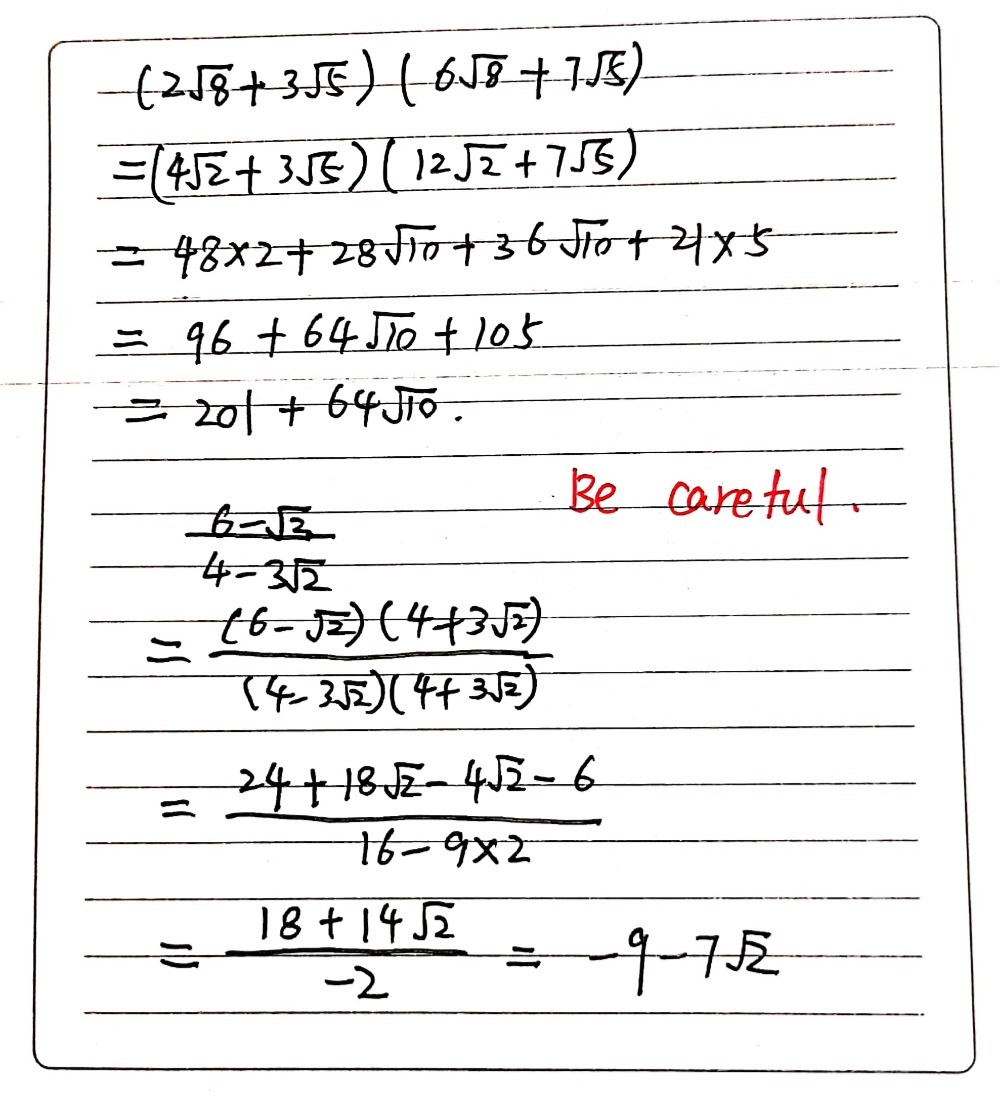 (2√8 + 3√5) (6√8 + 7√5)
= (4√2 + 3√5) (12√2 + 7√5)
= 48×2 + 28√10 + 36√10 + 21×5
= 96 + 64√10 + 105
= 201 + 64√10.
Be careful.
6-√2
4-3√2
= (6-√2)(4+3√2)
(4-3√2)(4+3√2)
= 24+18√2-4√2-6
16-9×2
= 18+14√2 = -9-7√2
-2